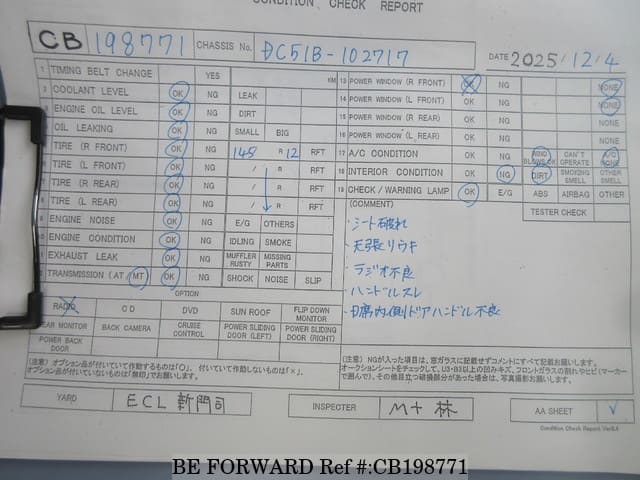 CONDITION CHECK REPORT
CB 198771 CHASSIS No. DC51B-102717 DATE 2025/12/4
1 TIMING BELT CHANGE YES KM
2 COOLANT LEVEL OK NG LEAK
3 ENGINE OIL LEVEL OK NG DIRT
OIL LEAKING OK NG SMALL BIG
TIRE (R FRONT) OK NG 145 R 12 RFT
TIRE (L FRONT) OK NG / R RFT
TIRE (R REAR) OK NG / R RFT
TIRE (L REAR) OK NG / R RFT
ENGINE NOISE OK NG E/G OTHERS
ENGINE CONDITION OK NG IDLING SMOKE
EXHAUST LEAK OK NG MUFFLER RUSTY MISSING PARTS
TRANSMISSION (AT MT) OK NG SHOCK NOISE SLIP
OPTION
RADIO CD DVD SUN ROOF FLIP DOWN MONITOR
REAR MONITOR BACK CAMERA CRUISE CONTROL POWER SLIDING DOOR (LEFT) POWER SLIDING DOOR (RIGHT)
POWER BACK DOOR
(注意) オプション品が付いていて作動するものは「○」、付いていて作動しないものは「×」、
オプションが付いていないものは「無印」でお願いします。
13 POWER WINDOW (R FRONT) OK NG NONE
14 POWER WINDOW (L FRONT) OK NG NONE
15 POWER WINDOW (R REAR) NONE
16 POWER WINDOW (L REAR) NONE
17 A/C CONDITION OK NG WIND BLOWS OK CAN'T OPERATE A/C NONE
18 INTERIOR CONDITION OK NG DIRT SMOKING SMELL OTHER SMELL
19 CHECK / WARNING LAMP OK E/G ABS AIRBAG OTHER
(COMMENT) TESTER CHECK
・シート破れ
・天張りウキ
・ラジオ不良
・ハンドルスレ
・席内側ドアハンドル不良
(注意) NGが入った項目は、窓ガラスに記載せずコメントにすべて記載お願いします。
オークションシートをチェックして、U3・B3以上の凹みキズ、フロントガラスの割れやヒビ(マーカーで囲んで)、その他目立つ破損部分があった場合は、写真撮影お願いします。
YARD ECL 新門司 INSPECTER 林 AA SHEET ✓
Condition Check Report Ver6.4
BE FORWARD Ref #:CB198771